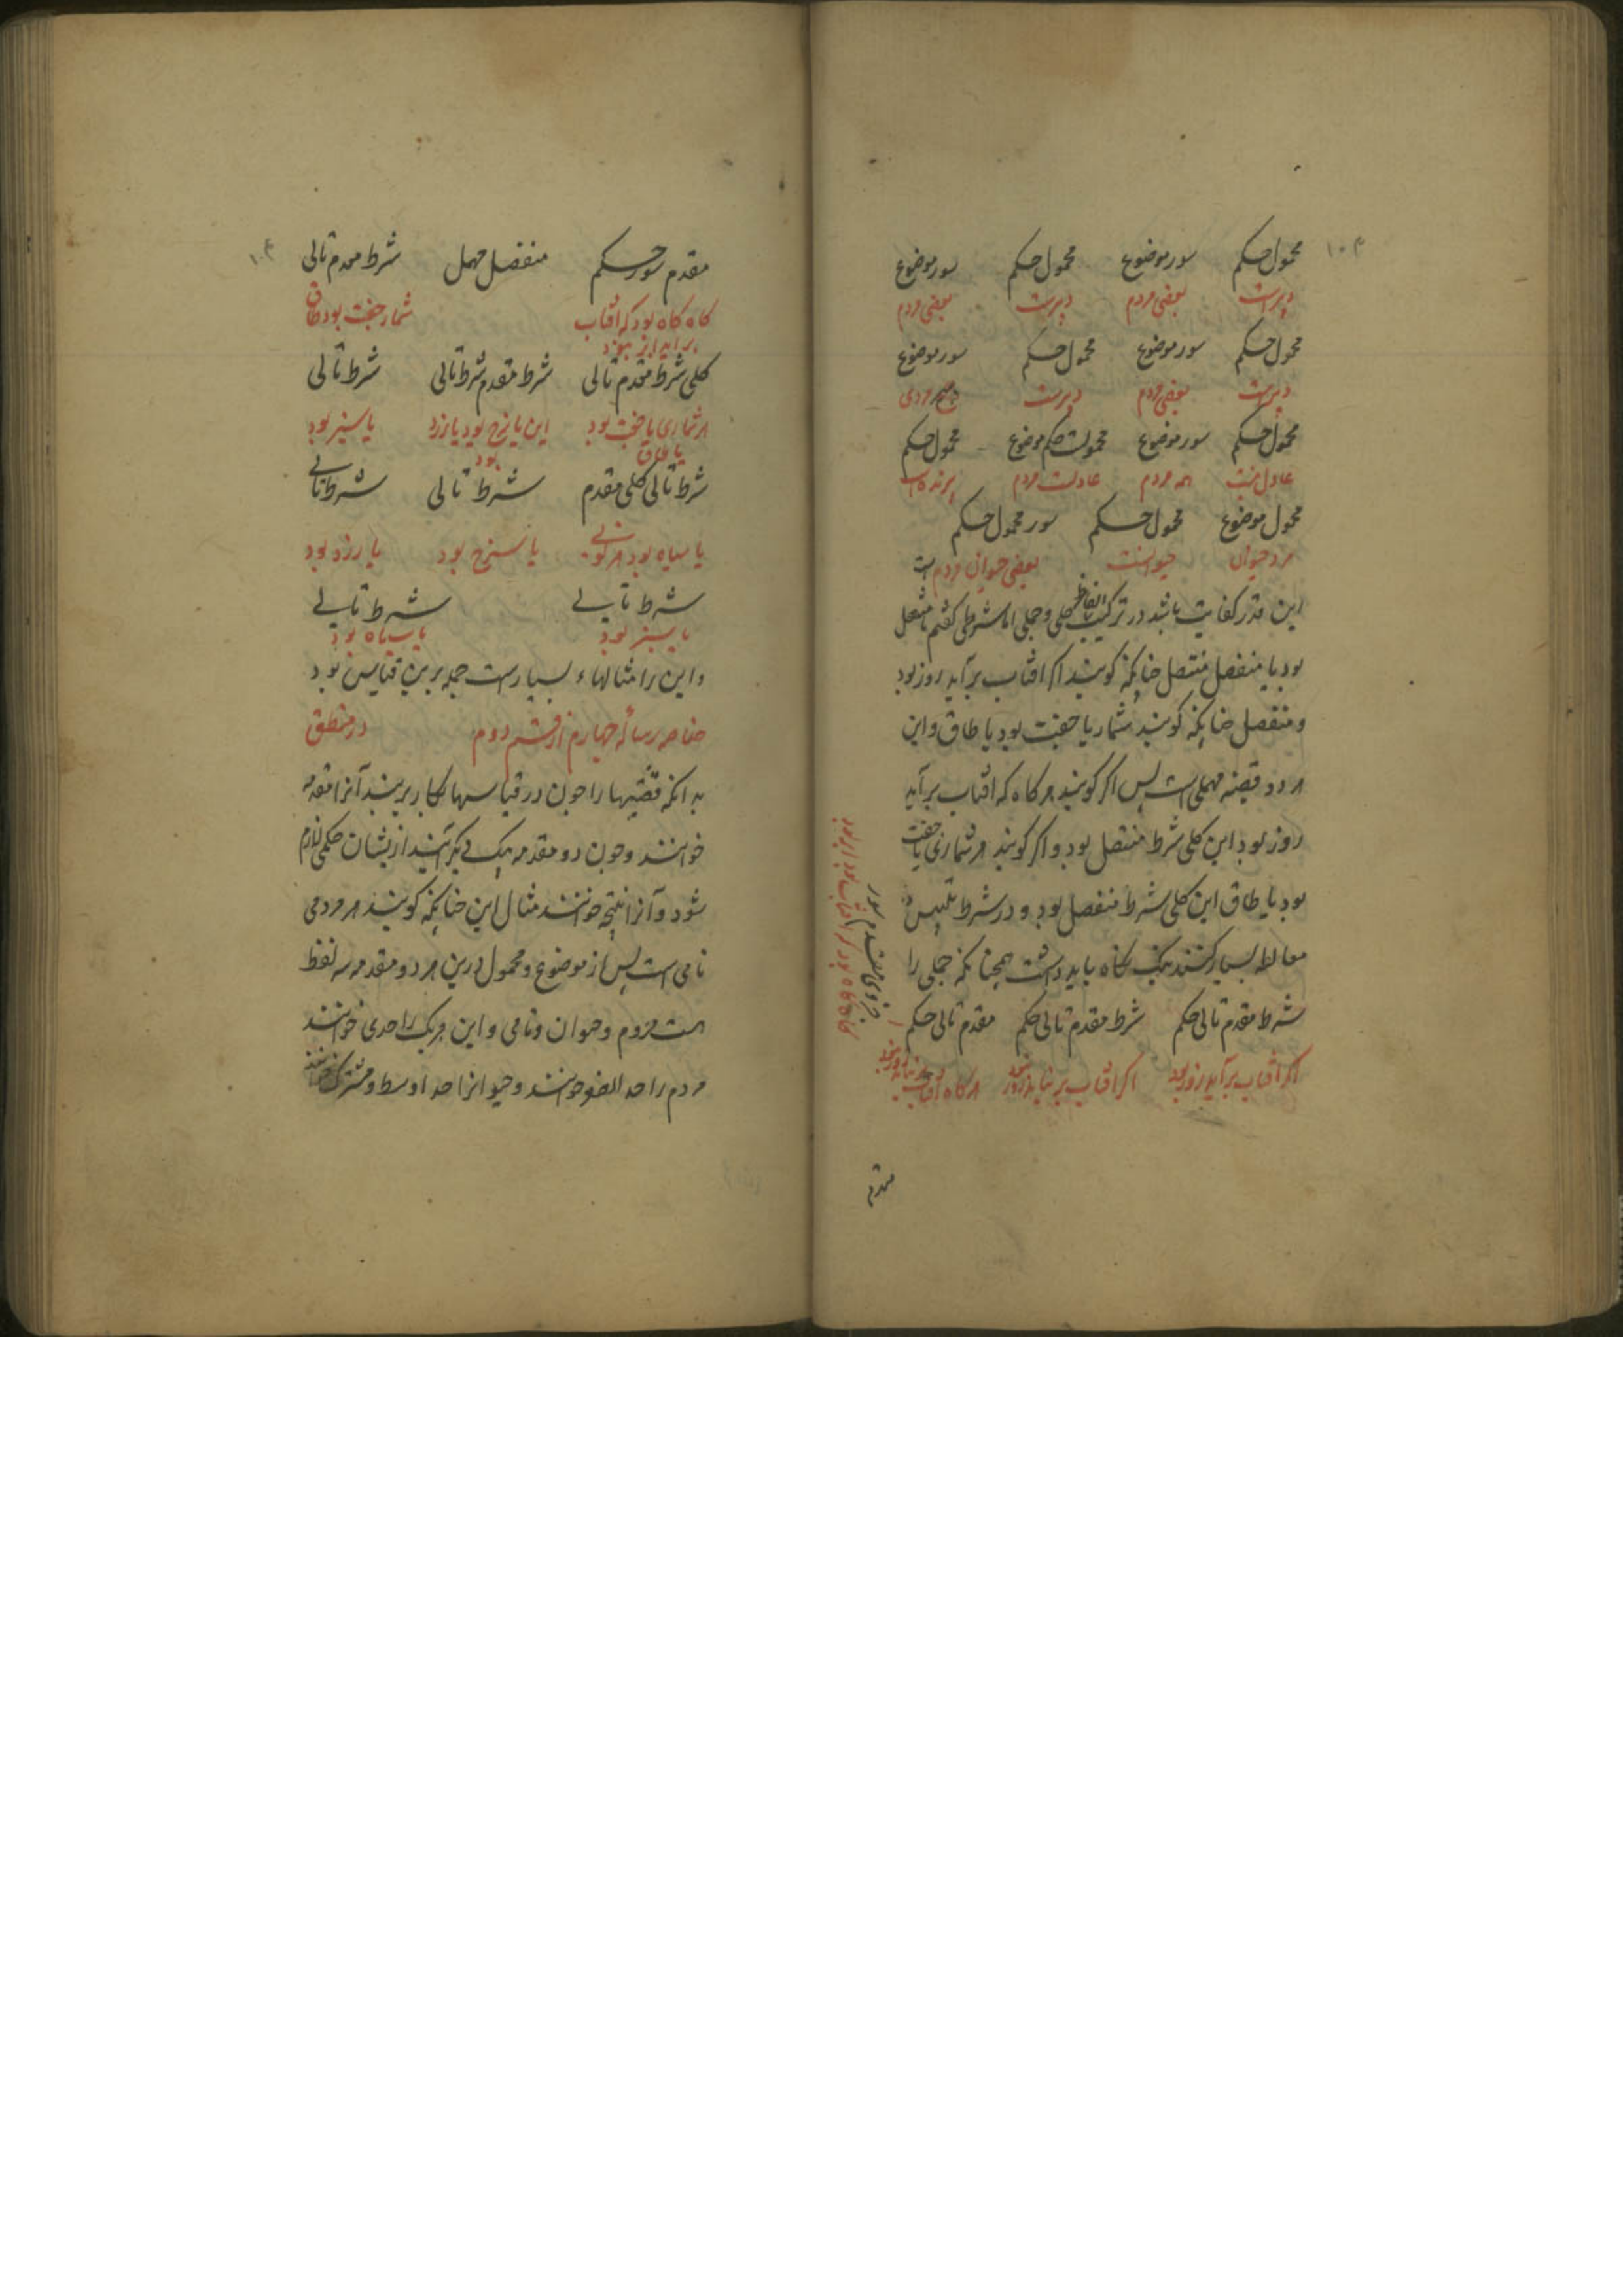 محمول حکم سور موضوع محمول حکم سور موضوع
دبیرست بعضی مردم دبیرست بعضی مردم
محمول حکم سور موضوع محمول حکم سور موضوع
دبیرست بعضی مردم دبیرست هیچ مردی
محمول حکم سور موضوع محمولست حکم موضوع محمول حکم
عادل نیست همه مردم عادلست مردم
محمول موضوع محمول حکم سور محمول حکم
مرد حیوان حیوانست بعضی حیوان مردم است
این قدر کفایت باشد در ترکیب الفاظ حملی و جملی اما شرطی کفتیم متصل
بود یا منفصل متصل جنانکه کویند اکر افتاب برآید روز بود
و منفصل جنانکه کویند شمار یا جفت بود یا طاق و این
هر دو قضیه مهملی است پس اکر کویند هر کاه که افتاب برآید
روز بود این کلی شرط متصل بود و اکر کویند هر شماری یا جفت
بود یا طاق این کلی شرط منفصل بود و در شرط تلبیس و
مغالطه بسیار کنند نیک نکاه باید داشت همچنانکه حملی را
شرط مقدم تالی حکم شرط مقدم تالی حکم مقدم تالی حکم
اکر افتاب برآید روز بود اکر افتاب بر نیاید روز نبود هر کاه افتاب
جزوی مقدم سور
کاه کاه بود که افتاب بود ابر بود
مقدم
۱۰۴
مقدم سور حکم منفصل مهمل شرط مقدم تالی
کاه کاه بود که افتاب شمار جفت بود طاق
برآید ابر نبود
کلی شرط مقدم تالی شرط مقدم شرط تالی شرط تالی
هر شماری یا جفت بود این یا سرخ بود یا زرد یا سبز بود
یا طاق بود
شرط تالی کلی مقدم شرط تالی شرط تالی
یا سیاه بود هر کونی یا سرخ بود یا زرد بود
شرط تالی شرط تالی
یا سبز بود یا سیاه بود
و این را مثالهاء بسیارست جمله برین قیاس بود
رساله جهارم از قسم دوم در منطق
بدانکه قضیها را جون در قیاسها بکار برند آنرا مقدمه
خوانند و جون دو مقدمه بیکدیکر آیند ازیشان حکمی لازم
شود و آنرا نتیجه خوانند مثال این جنانکه کویند هر مردمی
نامی است پس از موضوع و محمول درین هر دو مقدمه سه لفظ
است مردم و حیوان و نامی و این هر یک را حدی خوانند
مردم را حد اصغر خوانند و حیوانرا حد اوسط و مشترک خوانند